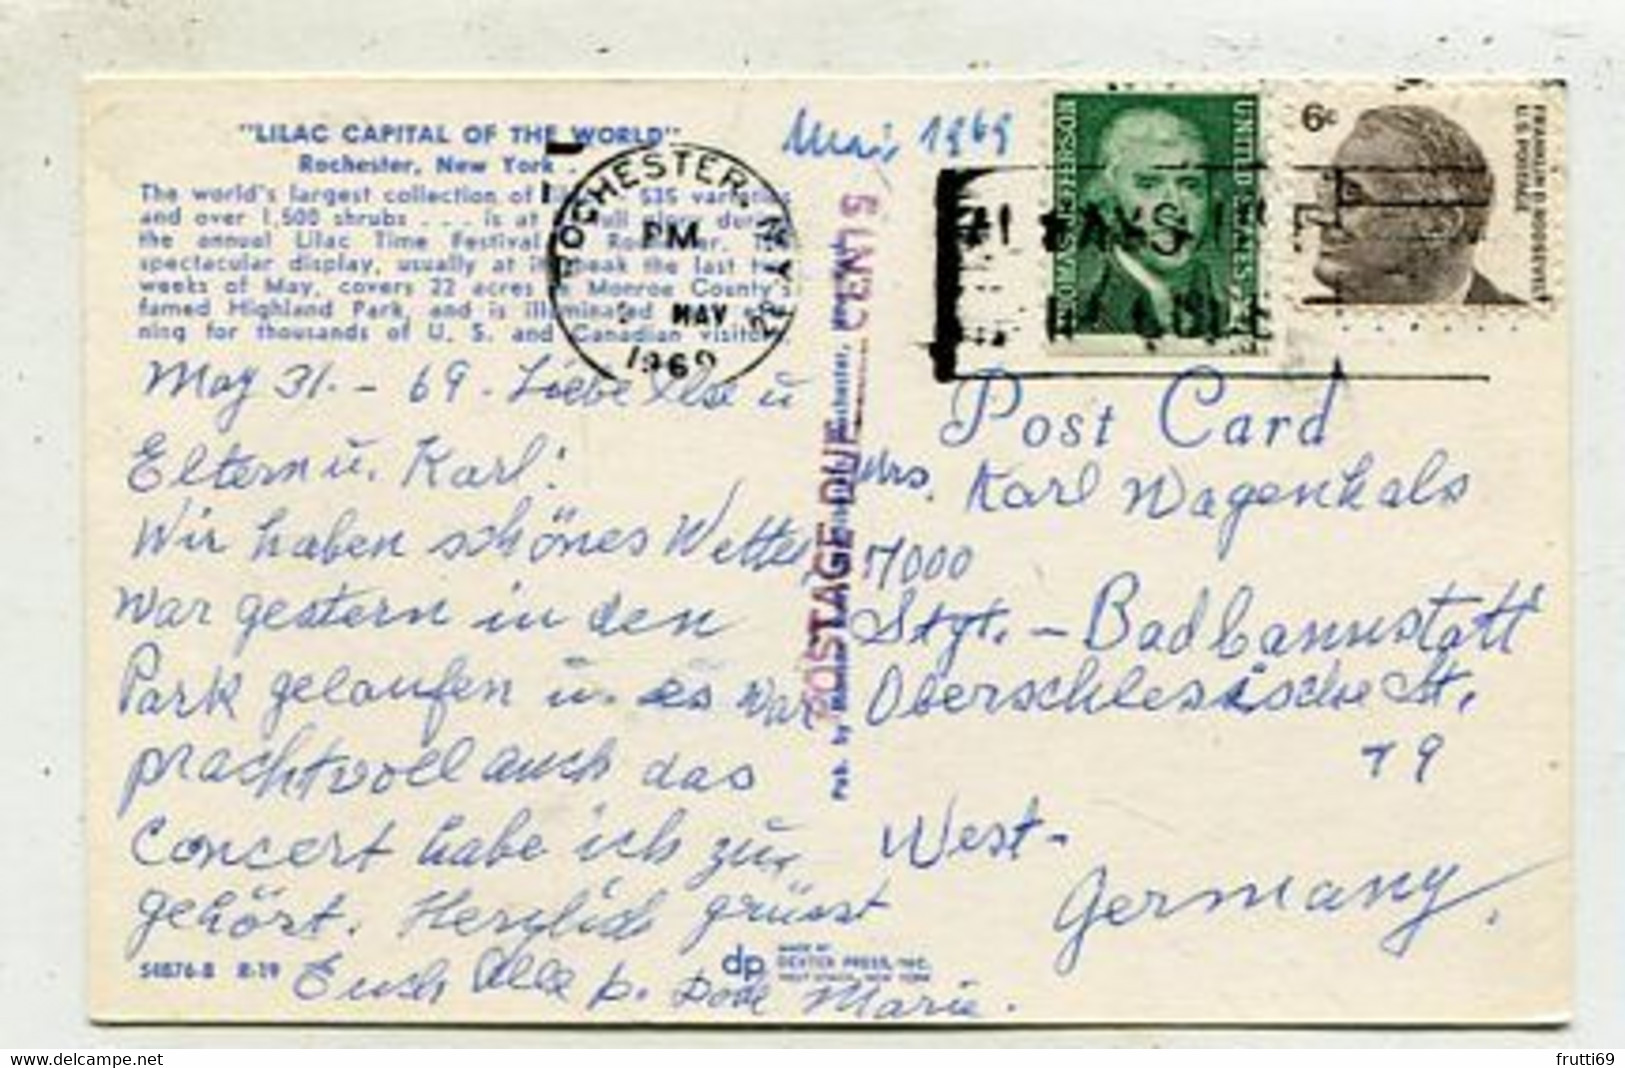 "LILAC CAPITAL OF THE WORLD"
Rochester, New York
The world's largest collection of 535 varieties
and over 1,500 shrubs . . . is at full glory during
the annual Lilac Time Festival
spectacular display, usually at its peak the last two
weeks of May, covers 22 acres in Monroe County's
famed Highland Park, and is illuminated
ning for thousands of U. S. and Canadian visitors.
May 31. - 69. Liebe Ilse u
Eltern u. Karl!
Wir haben schönes Wetter,
war gestern in den
Park gelaufen u. es war
prachtvoll auch das
Concert habe ich zu
gehört. Herzlich grüsst
Euch Alle p. Dode Marie.
54876-B R-19
dp MADE BY
DEXTER PRESS, INC.
WEST NYACK, NEW YORK
Pub. by Rochester,
POSTAGE DUE 5 CENTS
Mai, 1969
ROCHESTER, N.Y.
PM
MAY
1969
THOMAS JEFFERSON
UNITED STATES
6c
FRANKLIN D. ROOSEVELT
U.S. POSTAGE
ALWAYS USE
ZIP CODE
Post Card
Mrs. Karl Wagenhals
7000
Stgt. - Bad Cannstatt
Oberschlesische St.
79
West-
Germany.
www.delcampe.net
frutti69